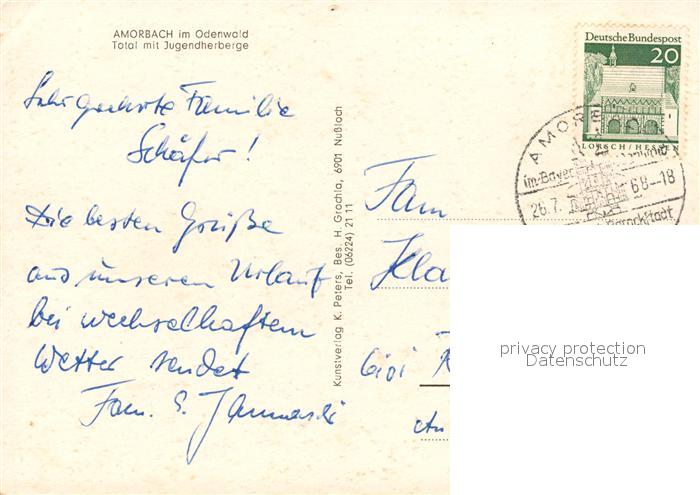 AMORBACH im Odenwald
Total mit Jugendherberge
Sehr geehrte Familie
Schäfer!
Die besten Grüße
aus unseren Urlaub
bei wechselhaftem
Wetter sendet
Fam. E.
Kunstverlag K. Peters, Bes. H. Grochla, 6901 Nußloch
Tel. (06224) 21 11
Deutsche Bundespost
20
LORSCH / HESSEN
AMOR
im Bayer
26.7. 68-18
Barockstadt
Fam
Kla
6101
An
privacy protection
Datenschutz